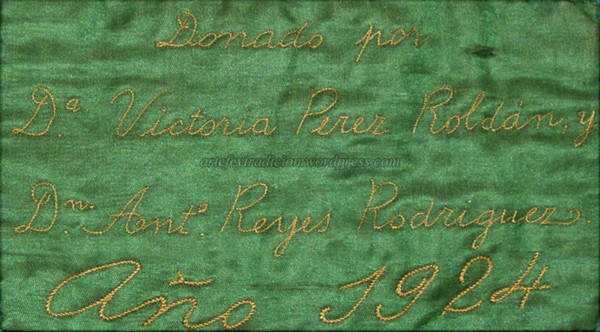 Donado por
D.ª Victoria Perez Roldán, y
artefextradicion.wordpress.com
Dn. Antº. Reyes Rodriguez.
Año 1924